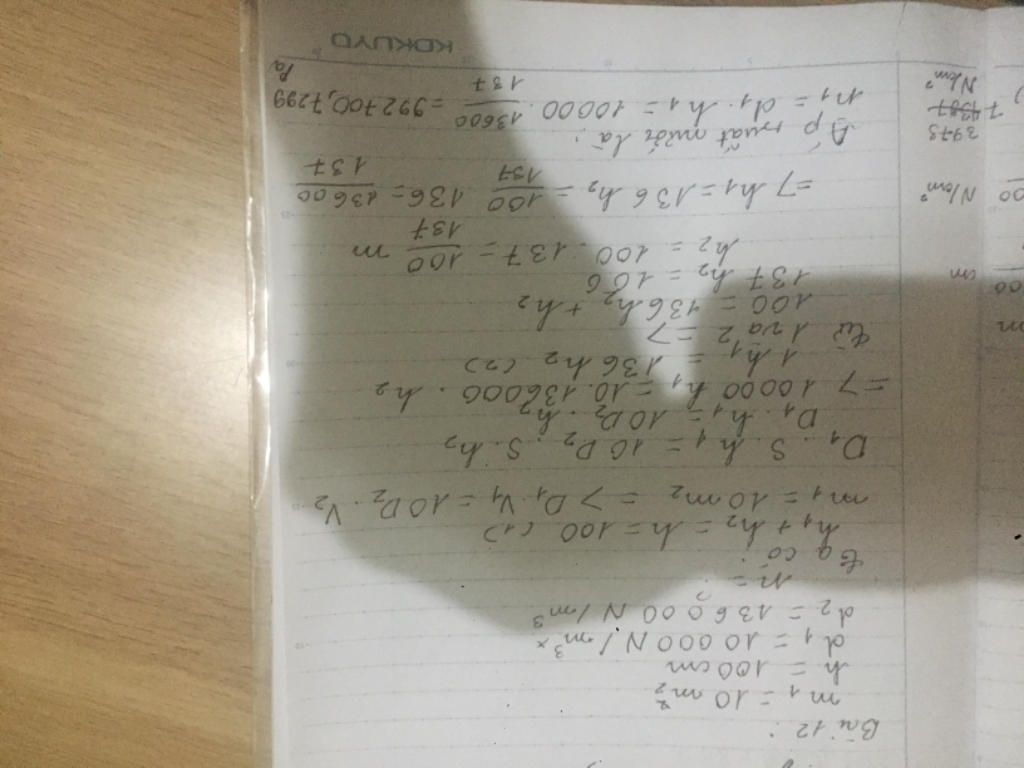 Bài 12:
m₁ = 10 m₂
h = 100 cm
d₁ = 10 000 N/m³
d₂ = 136 000 N/m³
p = ?
ta có:
h₁ + h₂ = h = 100 (1)
m₁ = 10 m₂ => D₁.V₁ = 10 D₂.V₂
D₁.S.h₁ = 10 D₂.S.h₂
D₁.h₁ = 10 D₂.h₂
=> 10000 h₁ = 10.136000.h₂
1 h₁ = 136 h₂ (2)
từ 1 và 2 =>
100 = 136 h₂ + h₂
137 h₂ = 100
h₂ = 100 : 137 = 100/137 m
=> h₁ = 136 h₂ = 100/137 . 136 = 13600/137
Áp suất nước là:
p₁ = d₁.h₁ = 10000 . 13600/137 = 992700,7299 Pa
KOKUYO
3973
N/cm²
N/cm²
cm